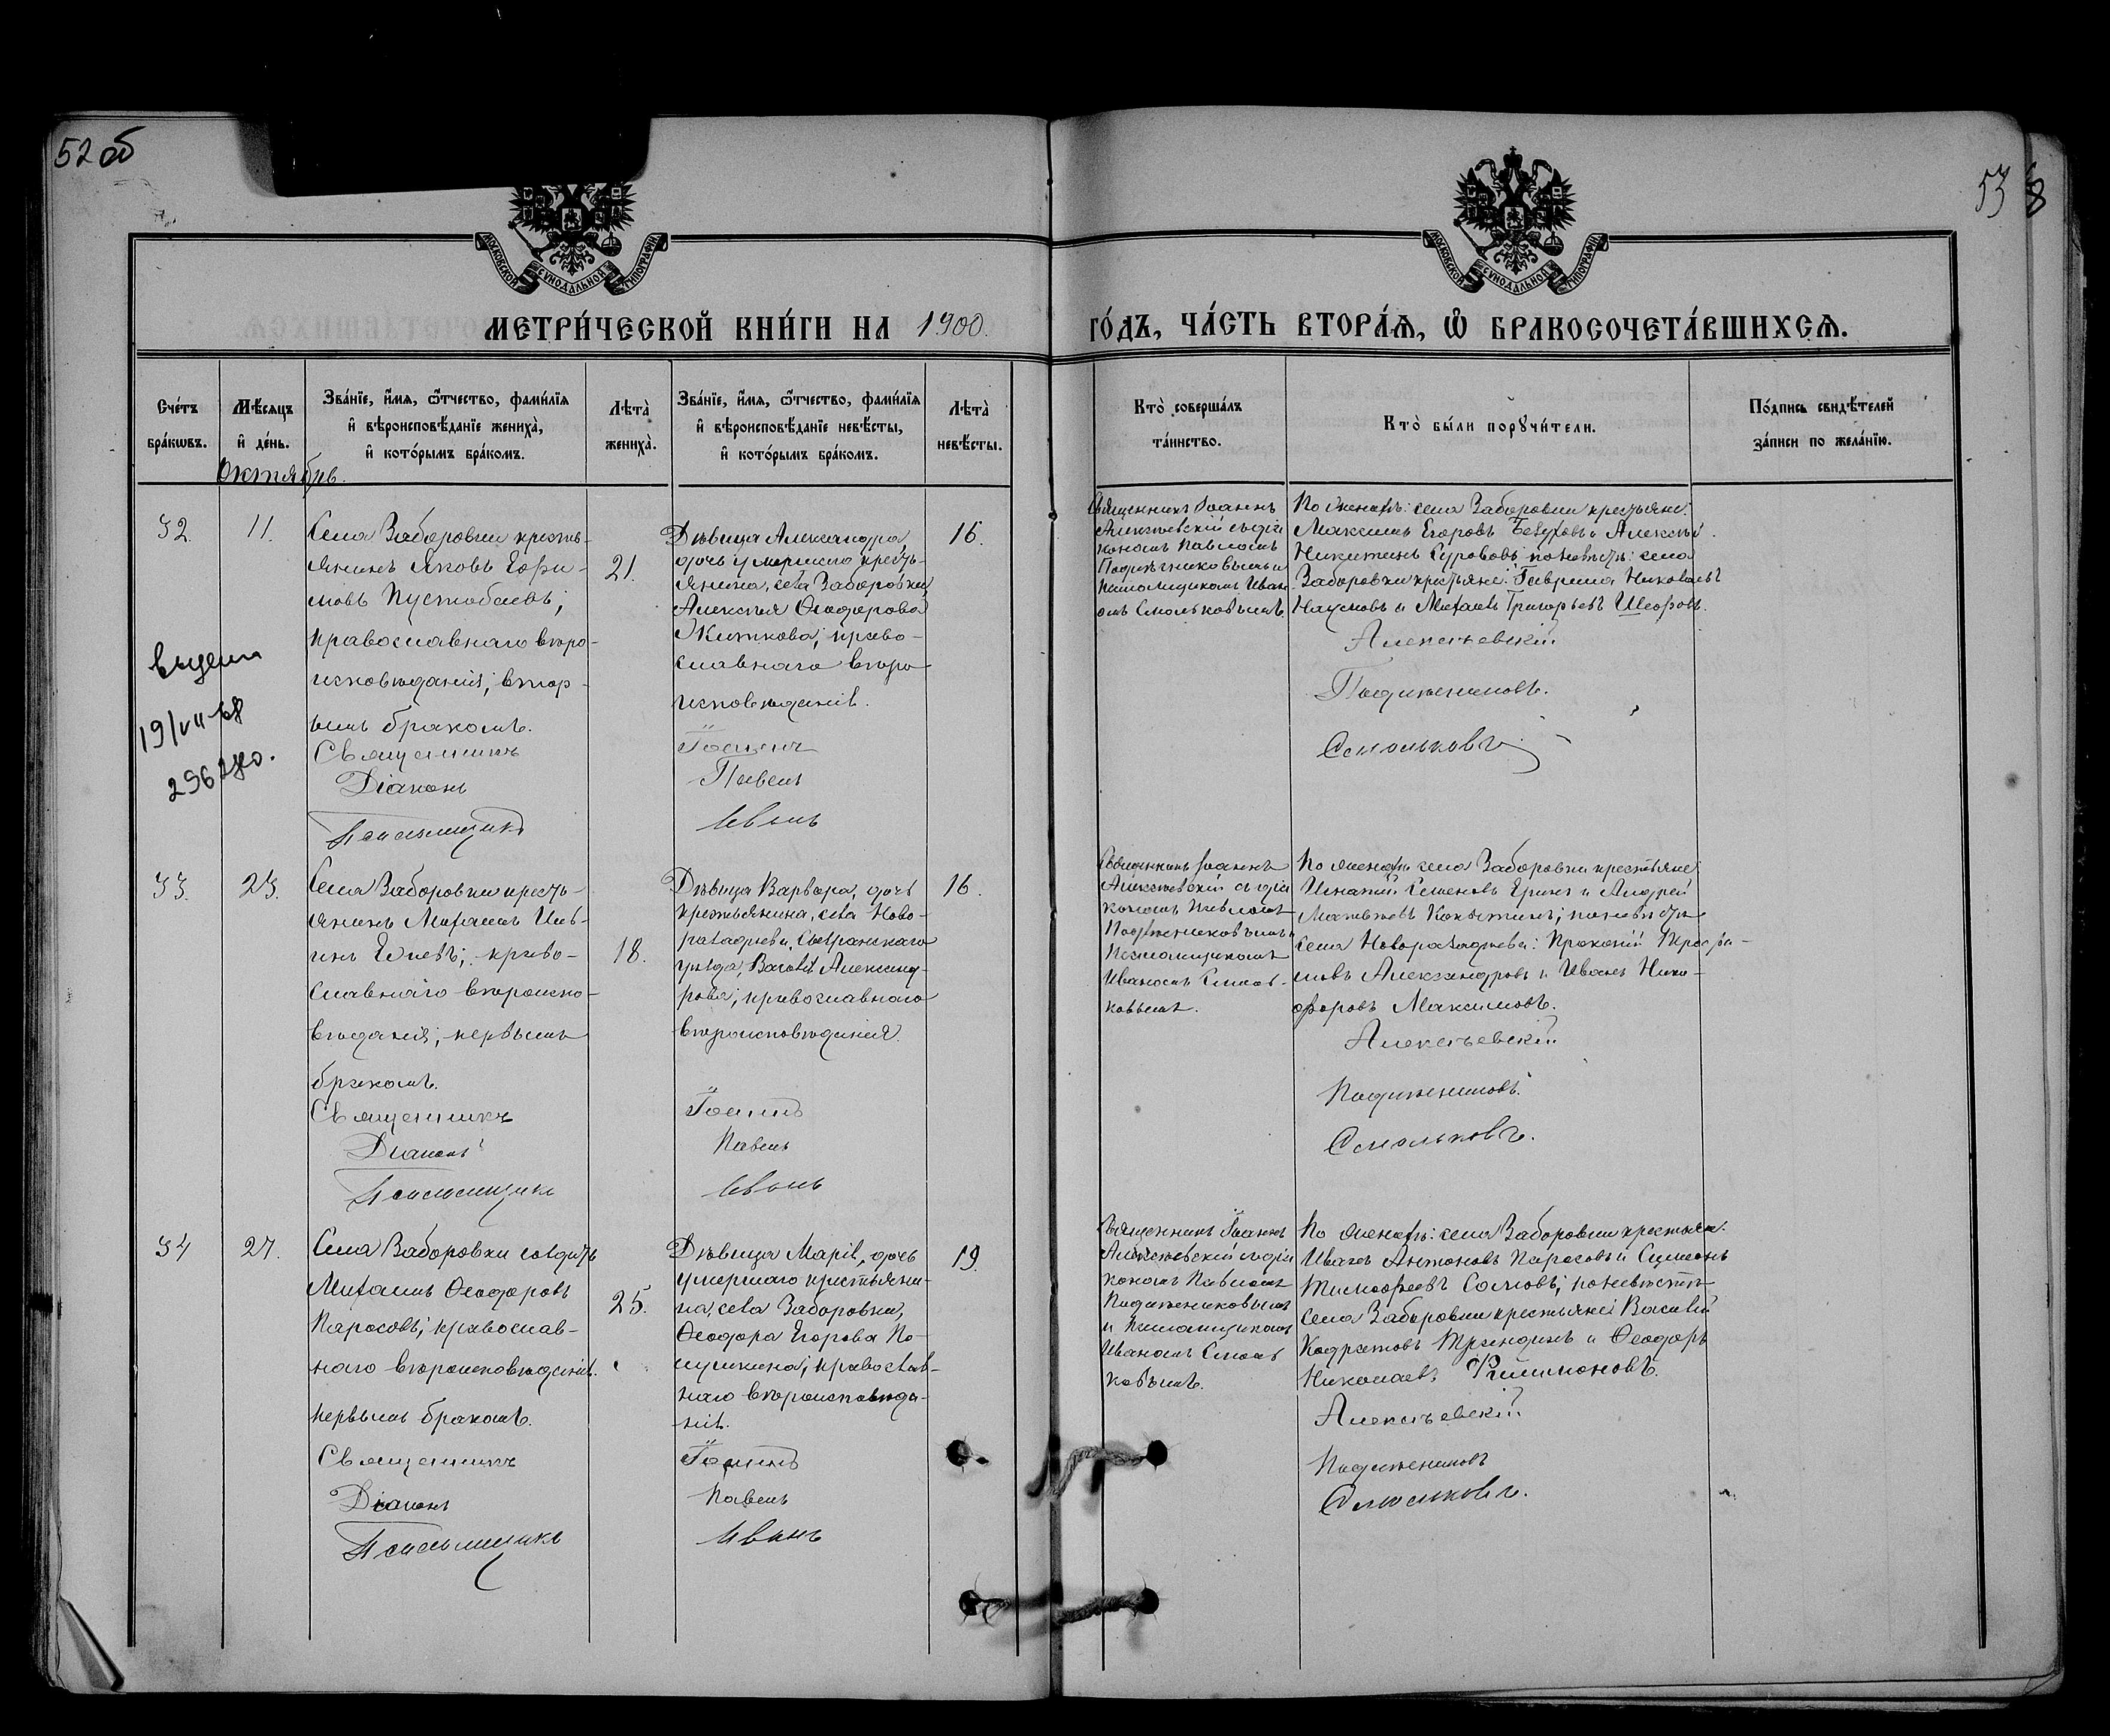 52 об
53
МОСКОВСКОЙ СУНОДАЛЬНОЙ ТИПОГРАФІИ
МОСКОВСКОЙ СУНОДАЛЬНОЙ ТИПОГРАФІИ
МЕТРИ́ЧЕСКОЙ КНИ́ГИ НА 1900.
ГО́ДЪ, ЧА́СТЬ ВТОРА́Я, Ѡ҆ БРАКОСОЧЕТА́ВШИХСЯ.
Сче́тъ
бра́кѡвъ.
Мѣ́сяцъ
и҆ де́нь.
Зва́нїе, и҆́мя, ѻ҆́тчество, фами́лїя
и҆ вѣроисповѣ́данїе жениха̀,
и҆ кото́рымъ бра́комъ.
Лѣта̀
жениха̀.
Зва́нїе, и҆́мя, ѻ҆́тчество, фами́лїя
и҆ вѣроисповѣ́данїе невѣ́сты,
и҆ кото́рымъ бра́комъ.
Лѣта̀
невѣ́сты.
Кто̀ соверша́лъ
та́инство.
Кто̀ бы́ли порꙋчи́тели.
По́дпись свидѣ́телей
за́писи по жела́нїю.
Октябрь.
32.
11.
Села Заборовки кресть-
янинъ Яковъ Ефи-
мовъ Пустобаевъ;
православнаго вѣро-
исповѣданія; втор-
ымъ бракомъ.
Священникъ
Діаконъ
Псаломщикъ
21.
Дѣвица Александра,
дочь умершаго кресть-
янина, села Заборовки,
Алексѣя Ѳеодорова
Житкова; право-
славнаго вѣро-
исповѣданія.
Іоаннъ
Павелъ
Иванъ
16.
Священникъ Іоаннъ
Алексѣевскій съ діа
кономъ Павломъ
псаломщикомъ Иван
омъ Смольковымъ.
По женихѣ: села Заборовки крестьяне:
Максимъ Егоровъ и Алексѣй
Никитинъ Сурововъ; по невѣстѣ: села
Заборовки крестьяне: Гавріилъ Николаевъ
Наумовъ и Михаилъ Григорьевъ
Алексѣевскій
Смольковъ
19/VII-68
33.
23.
Села Заборовки кресть-
янинъ Михаилъ
православнаго вѣроиспо-
вѣданія; первымъ
бракомъ.
Священникъ
Діаконъ
Псаломщикъ
18.
Дѣвица Варвара, дочь
крестьянина, села Ново-
рачадѣева, Сызранскаго
уѣзда, Василія Александ-
рова; православнаго
вѣроисповѣданія.
Іоаннъ
Павелъ
Иванъ
16.
Священникъ Іоаннъ
Алексѣевскій съ діа
кономъ Павломъ
Псаломщикомъ
Иваномъ Смоль-
ковымъ.
По женихѣ села Заборовки крестьяне
Игнатій Семеновъ и Андрей
Матвѣевъ по невѣстѣ
села Новорачадѣева: Прокопій Троф-
имовъ Александровъ и Иванъ Ники-
форовъ Максимовъ.
Алексѣевскій
Смольковъ.
34
27.
Села Заборовки солдатъ
Михаилъ Ѳеодоровъ
Паросовъ; православ-
наго вѣроисповѣданія.
первымъ бракомъ.
Священникъ
Діаконъ
Псаломщикъ
25.
Дѣвица Марія, дочь
умершаго крестьяни-
на, села Заборовки,
Ѳеодора Егорова
православ-
наго вѣроисповѣда-
нія.
Іоаннъ
Павелъ
Иванъ
19.
Священникъ Іоаннъ
Алексѣевскій съ діа
кономъ Павломъ
и Псаломщикомъ
Иваномъ Смоль
ковымъ.
По женихѣ: села Заборовки крестьяне:
Иванъ Антоновъ Паросовъ и Симеонъ
Тимофеевъ Сомовъ; по невѣстѣ
села Заборовки крестьяне: Василій
Кодратовъ Трендинъ и Ѳеодоръ
Николаевъ Филимоновъ.
Алексѣевскій
Смольковъ.